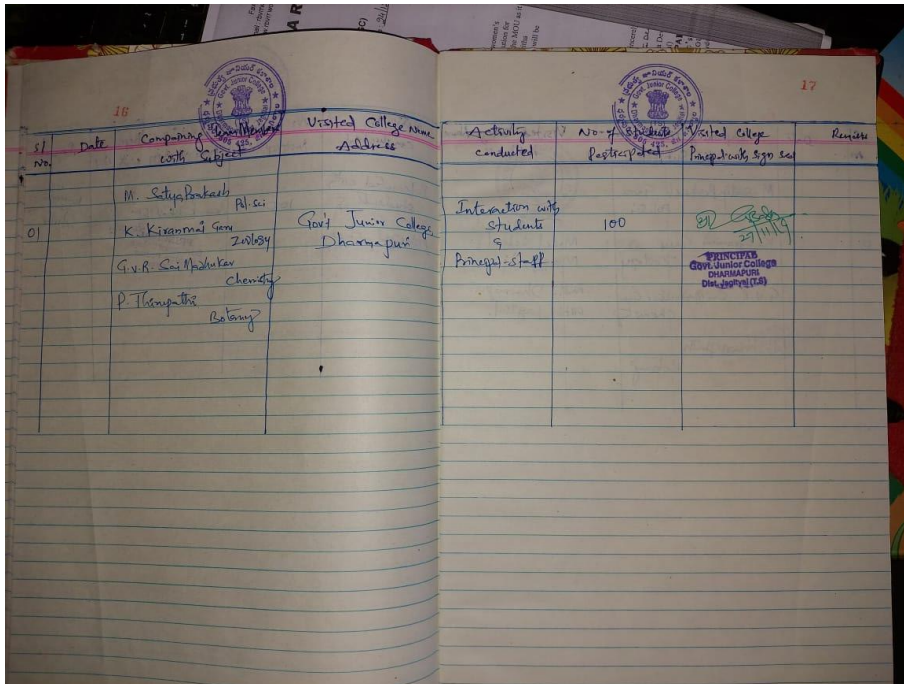 16
Sl No.
Date
Companing Team Members with Subject
Visited College Name Address
01
M. SatyaPrakash
Pol. Sci
K. Kiranmai Garu
Zoology
G.V.R. Sai Madhukar
Chemistry
P. Thirupathi
Botany
Govt Junior College,
Dharmapuri
17
Activity conducted
No. of Students
Visited College Principal with Sign Seal
Interaction with
Students
&
Principal-staff
100
27/11/19
PRINCIPAL
Govt. Junior College
DHARMAPURI
Dist. Jagityal (T.S)
Govt. Junior College